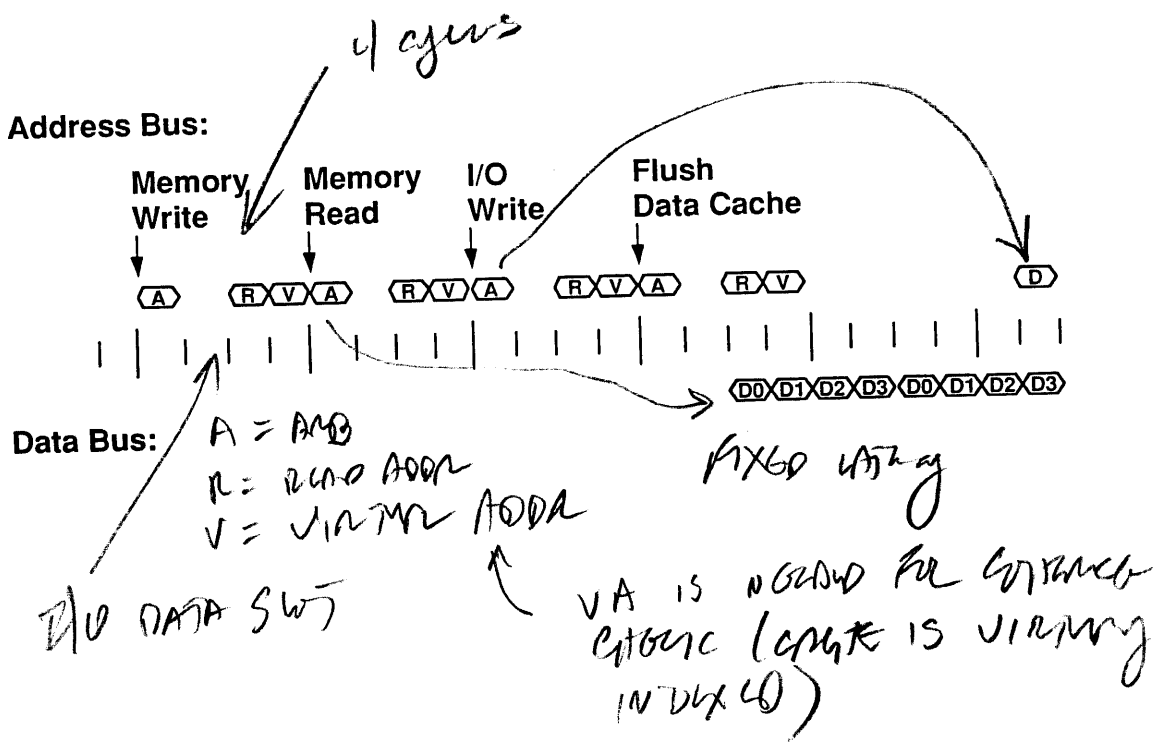 4 cycles
Address Bus:
Memory Write
Memory Read
I/O Write
Flush Data Cache
A R V A R V A R V A R V D
D0 D1 D2 D3 D0 D1 D2 D3
Data Bus:
A = ARB
R = READ ADDR
V = VIRTUAL ADDR
FIXED Latency
I/O DATA SLOT
VA IS NEEDED FOR COHERENCE
CHECK (CACHE IS VIRTUALLY
INDEXED)